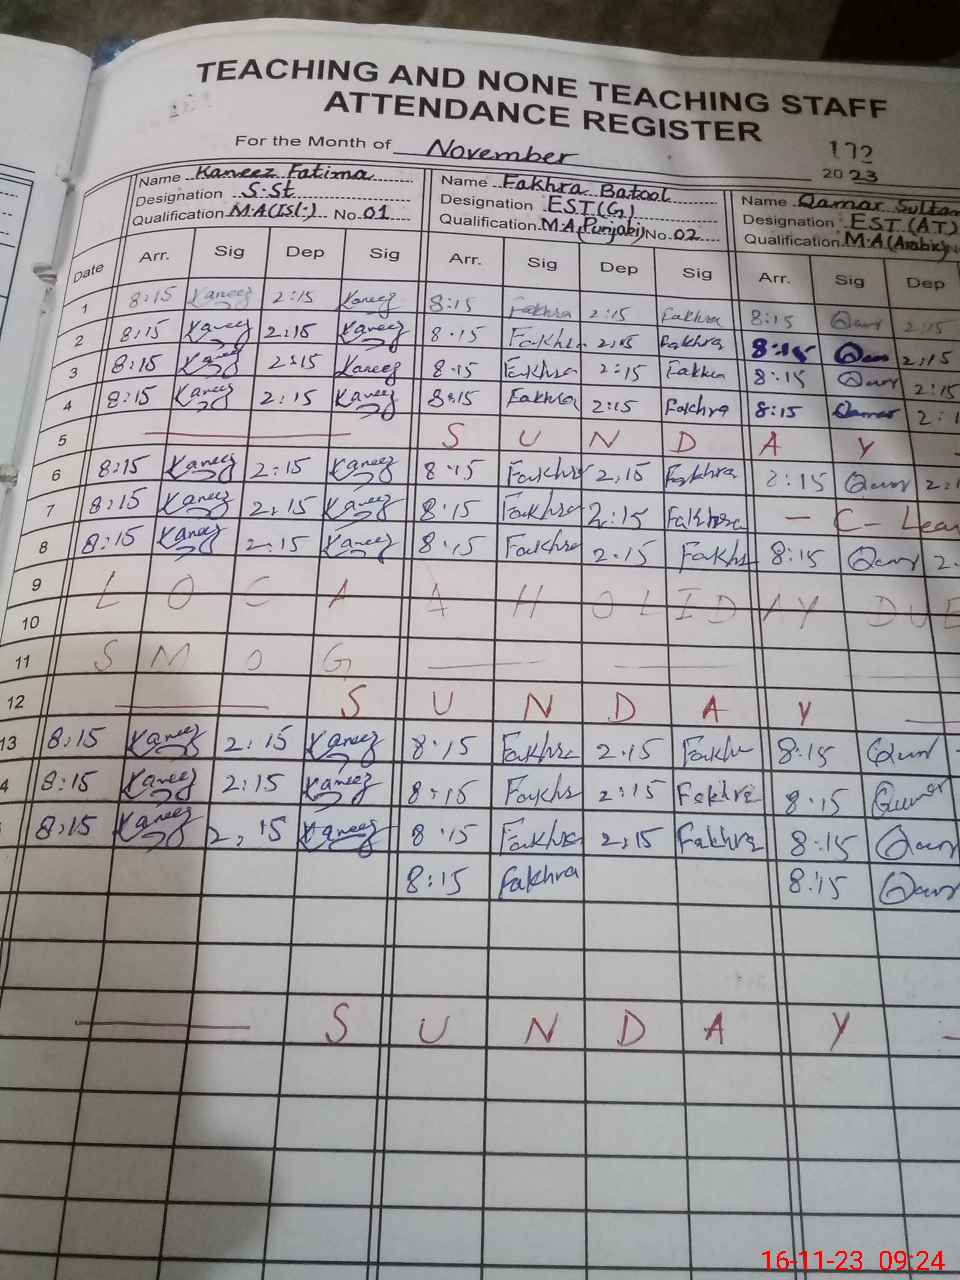 TEACHING AND NONE TEACHING STAFF
ATTENDANCE REGISTER
172
For the Month of November 2023
Name Kaneez Fatima Name Fakhra Batool Name Qamar Sultan
Designation S.St Designation EST(G) Designation EST (AT)
Qualification M.A(Isl-) No. 01 Qualification M.A(Punjabi) No. 02 Qualification M.A(Arabic) N
Date Arr. Sig Dep Sig Arr. Sig Dep Sig Arr. Sig Dep
1 8:15 Kaneez 2:15 Kaneez 8:15 Fakhra 2:15 Fakhra 8:15 Qamr 2:15
2 8:15 Kaneez 2:15 Kaneez 8:15 Fakhra 2:15 Fakhra 8:15 Qamr 2:15
3 8:15 Kaneez 2:15 Kaneez 8:15 Fakhra 2:15 Fakhra 8:15 Qamr 2:15
4 8:15 Kaneez 2:15 Kaneez 8:15 Fakhra 2:15 Fakhra 8:15 Qamar 2:1
5 S U N D A Y
6 8:15 Kaneez 2:15 Kaneez 8:15 Fakhra 2:15 Fakhra 8:15 Qamr 2:1
7 8:15 Kaneez 2:15 Kaneez 8:15 Fakhra 2:15 Fakhra – C- Leav
8 8:15 Kaneez 2:15 Kaneez 8:15 Fakhra 2:15 Fakhr 8:15 Qamr 2.
9 L O C A A H O L I D A Y D U E
10
11 S M O G
12 S U N D A Y
13 8:15 Kaneez 2:15 Kaneez 8:15 Fakhra 2:15 Fakhr 8:15 Qamr
4 8:15 Kaneez 2:15 Kaneez 8:15 Fakhr 2:15 Fakhra 8:15 Qamar
8:15 Kaneez 2:15 Kaneez 8:15 Fakhra 2:15 Fakhra 8:15 Qamr
8:15 Fakhra 8:15 Qamr
S U N D A Y
16-11-23 09:24